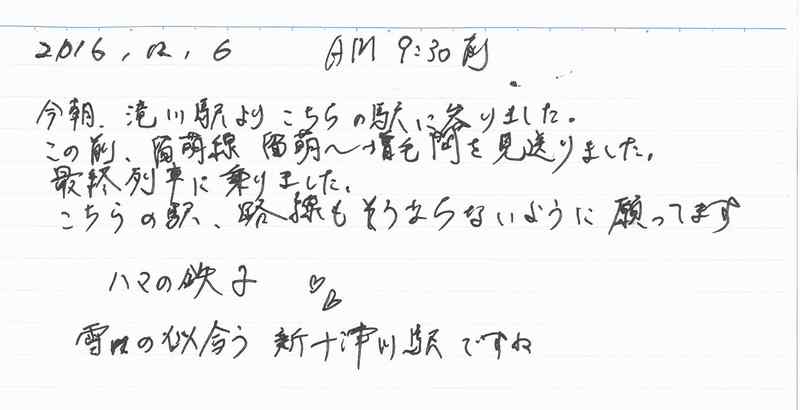 2016.12.6 AM 9:30前
今朝、滝川駅よりこちらの駅に参りました。
この前、留萌線 留萌～増毛間を見送りました。
最終列車に乗りました。
こちらの駅、路線もそうならないように願ってます
ハマの鉄子 ♡♡
雪の似合う 新十津川駅ですね